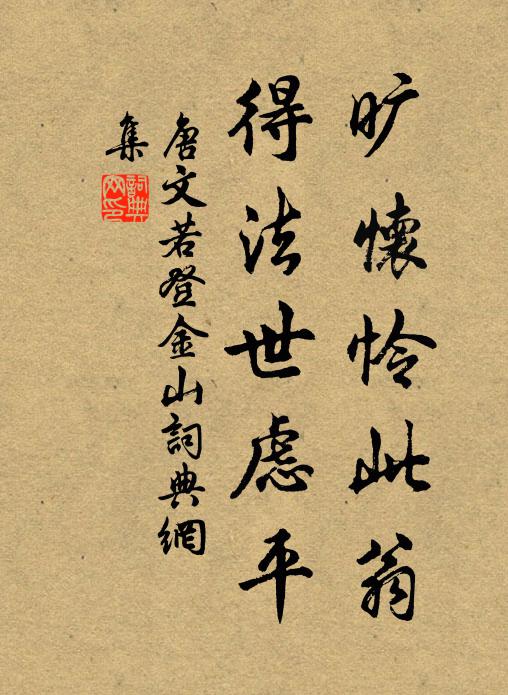 旷怀怜此翁
得法世虑平
唐文若登金山詞典網
集
詞典網印